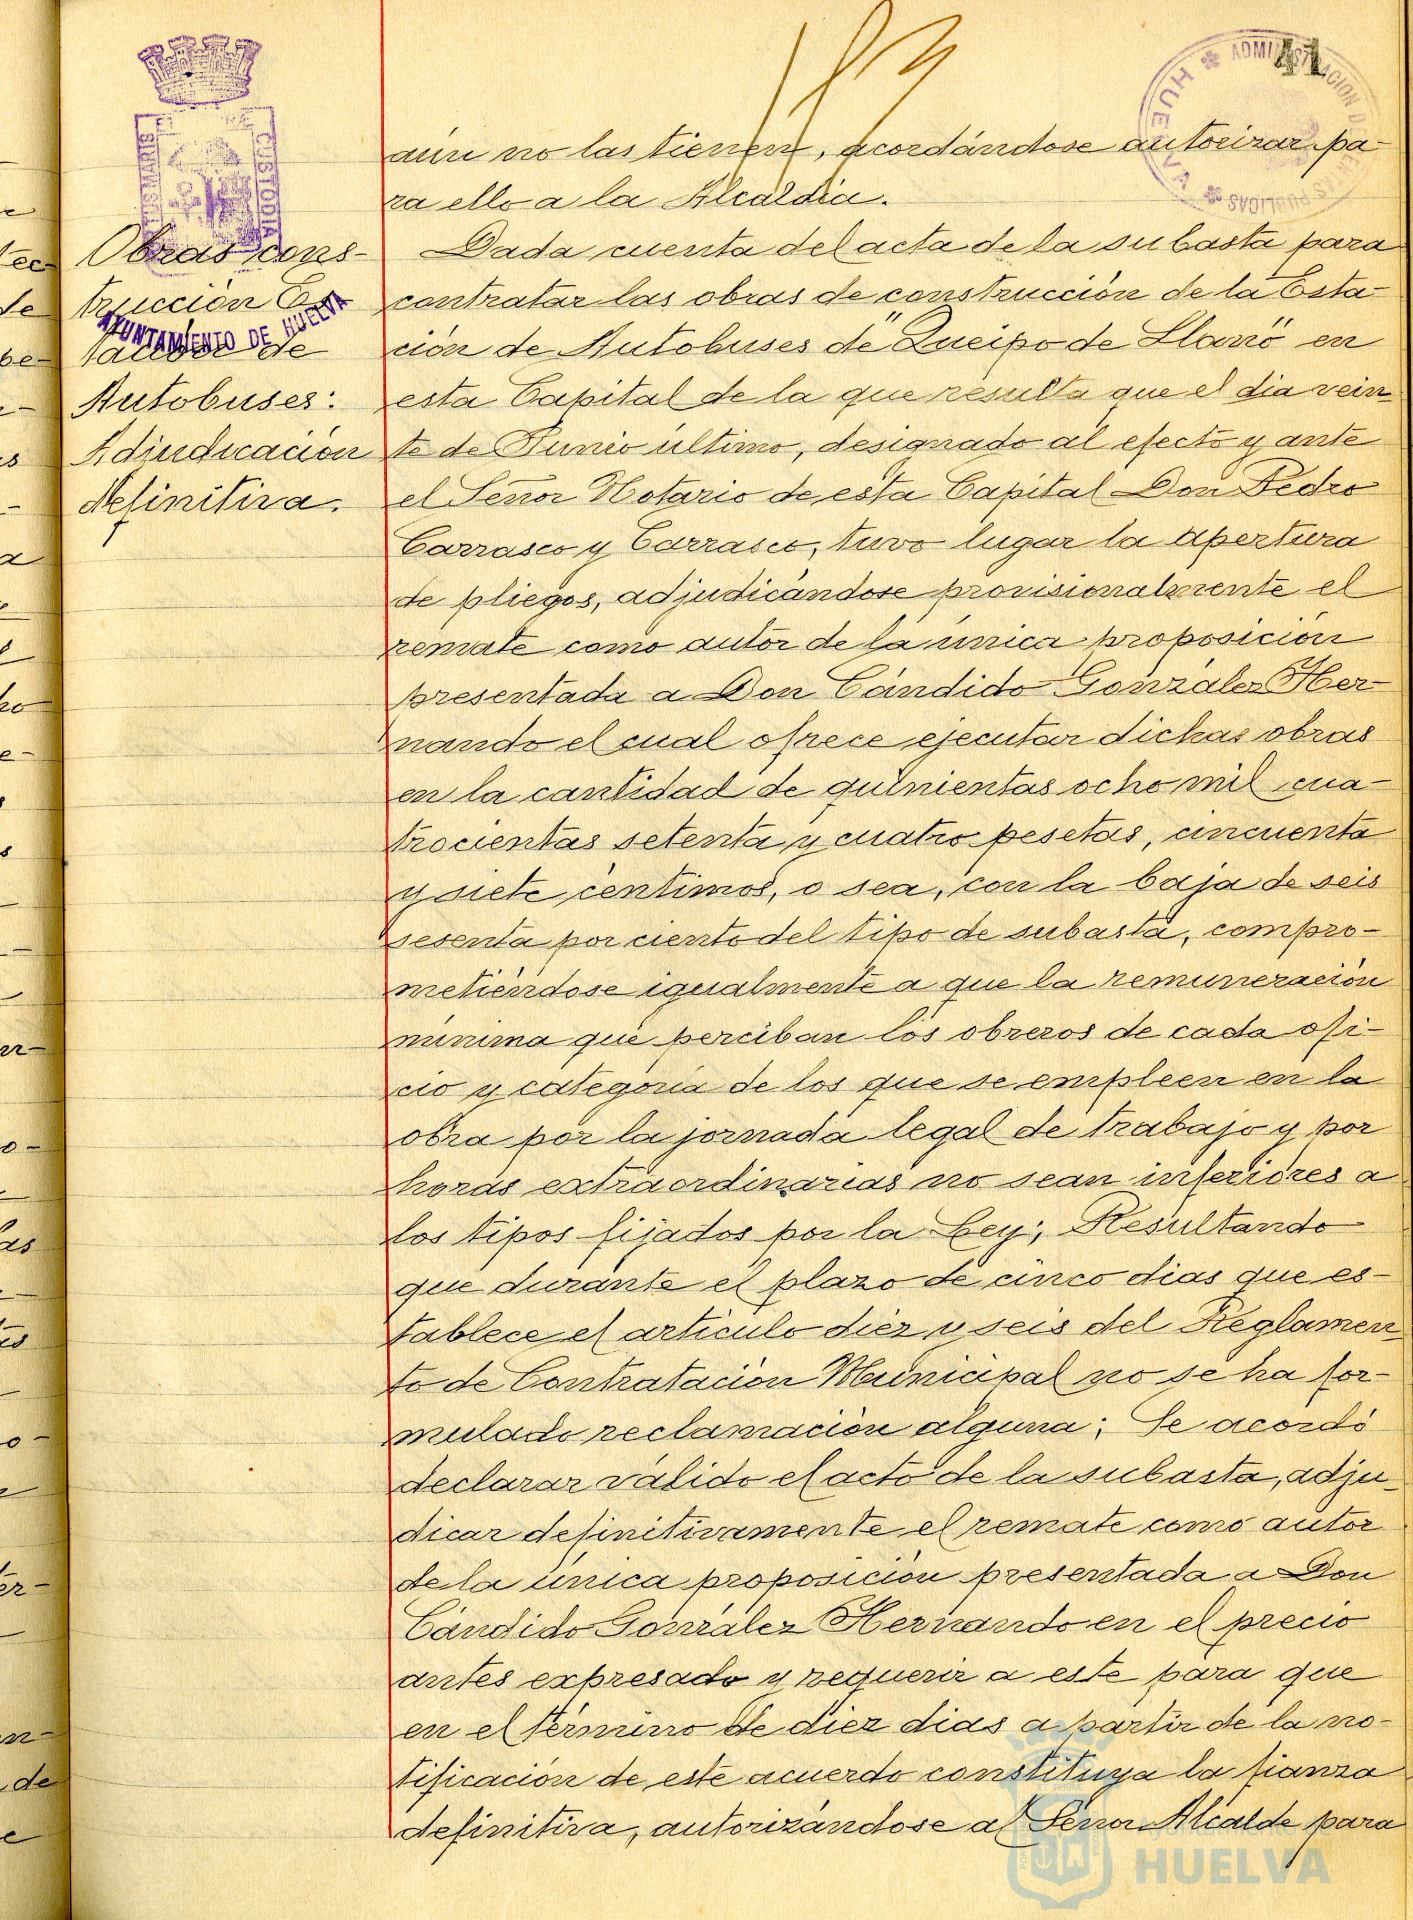 41
aún no las tienen, acordándose autorizar pa-
ra ello a la Alcaldía.
Obras cons-
trucción Es-
tación de
Autobuses:
Adjudicación
definitiva.
Dada cuenta del acta de la subasta para
contratar las obras de construcción de la Esta-
ción de Autobuses de "Queipo de Llano" en
esta Capital de la que resulta que el dia vein-
te de Junio último, designado al efecto y ante
el Señor Notario de esta Capital Don Pedro
Carrasco y Carrasco, tuvo lugar la apertura
de pliegos, adjudicándose provisionalmente el
remate como autor de la única proposición
presentada a Don Cándido González Her-
nando el cual ofrece ejecutar dichas obras
en la cantidad de quinientas ocho mil cua-
trocientas setenta y cuatro pesetas, cincuenta
y siete centimos, o sea, con la baja de seis
sesenta por ciento del tipo de subasta, compro-
metiéndose igualmente a que la remuneración
mínima que perciban los obreros de cada ofi-
cio y categoria de los que se empleen en la
obra por la jornada legal de trabajo y por
horas extraordinarias no sean inferiores a
los tipos fijados por la Ley; Resultando
que durante el plazo de cinco dias que es-
tablece el articulo diez y seis del Reglamen-
to de Contratación Municipal no se ha for-
mulado reclamación alguna; Se acordó
declarar válido el acto de la subasta, adju-
dicar definitivamente el remate como autor
de la única proposición presentada a Don
Cándido González Hernando en el precio
antes expresado y requerir a este para que
en el término de diez dias a partir de la no-
tificación de este acuerdo constituya la fianza
definitiva, autorizándose al Señor Alcalde para
CUSTODIA
AYUNTAMIENTO DE HUELVA
HUELVA
HUELVA